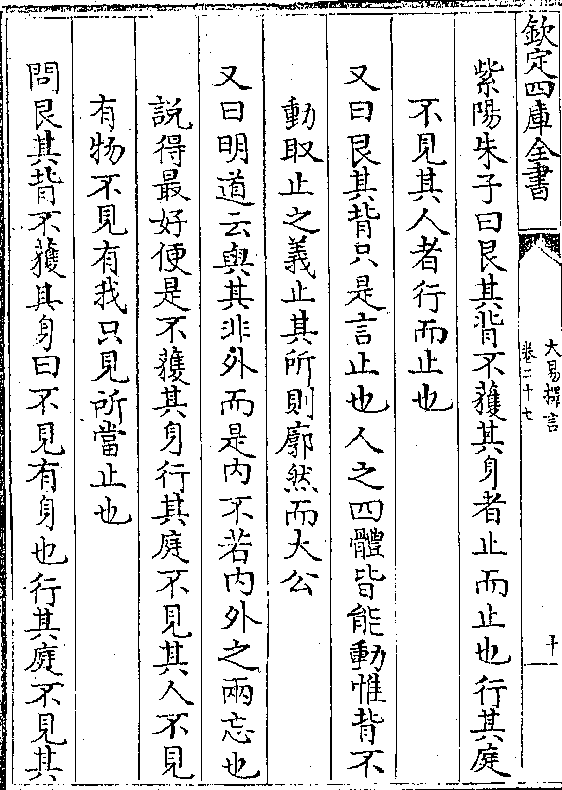 欽定四庫全書
大易擇言
卷二十七
十
紫陽朱子曰艮其背不獲其身者止而止也行其庭
不見其人者行而止也
又曰艮其背只是言止也人之四體皆能動惟背不
動取止之義止其所則廓然而大公
又曰明道云與其非外而是内不若内外之兩忘也
説得最好便是不獲其身行其庭不見其人不見
有物不見有我只見所當止也
問艮其背不獲其身曰不見有身也行其庭不見其